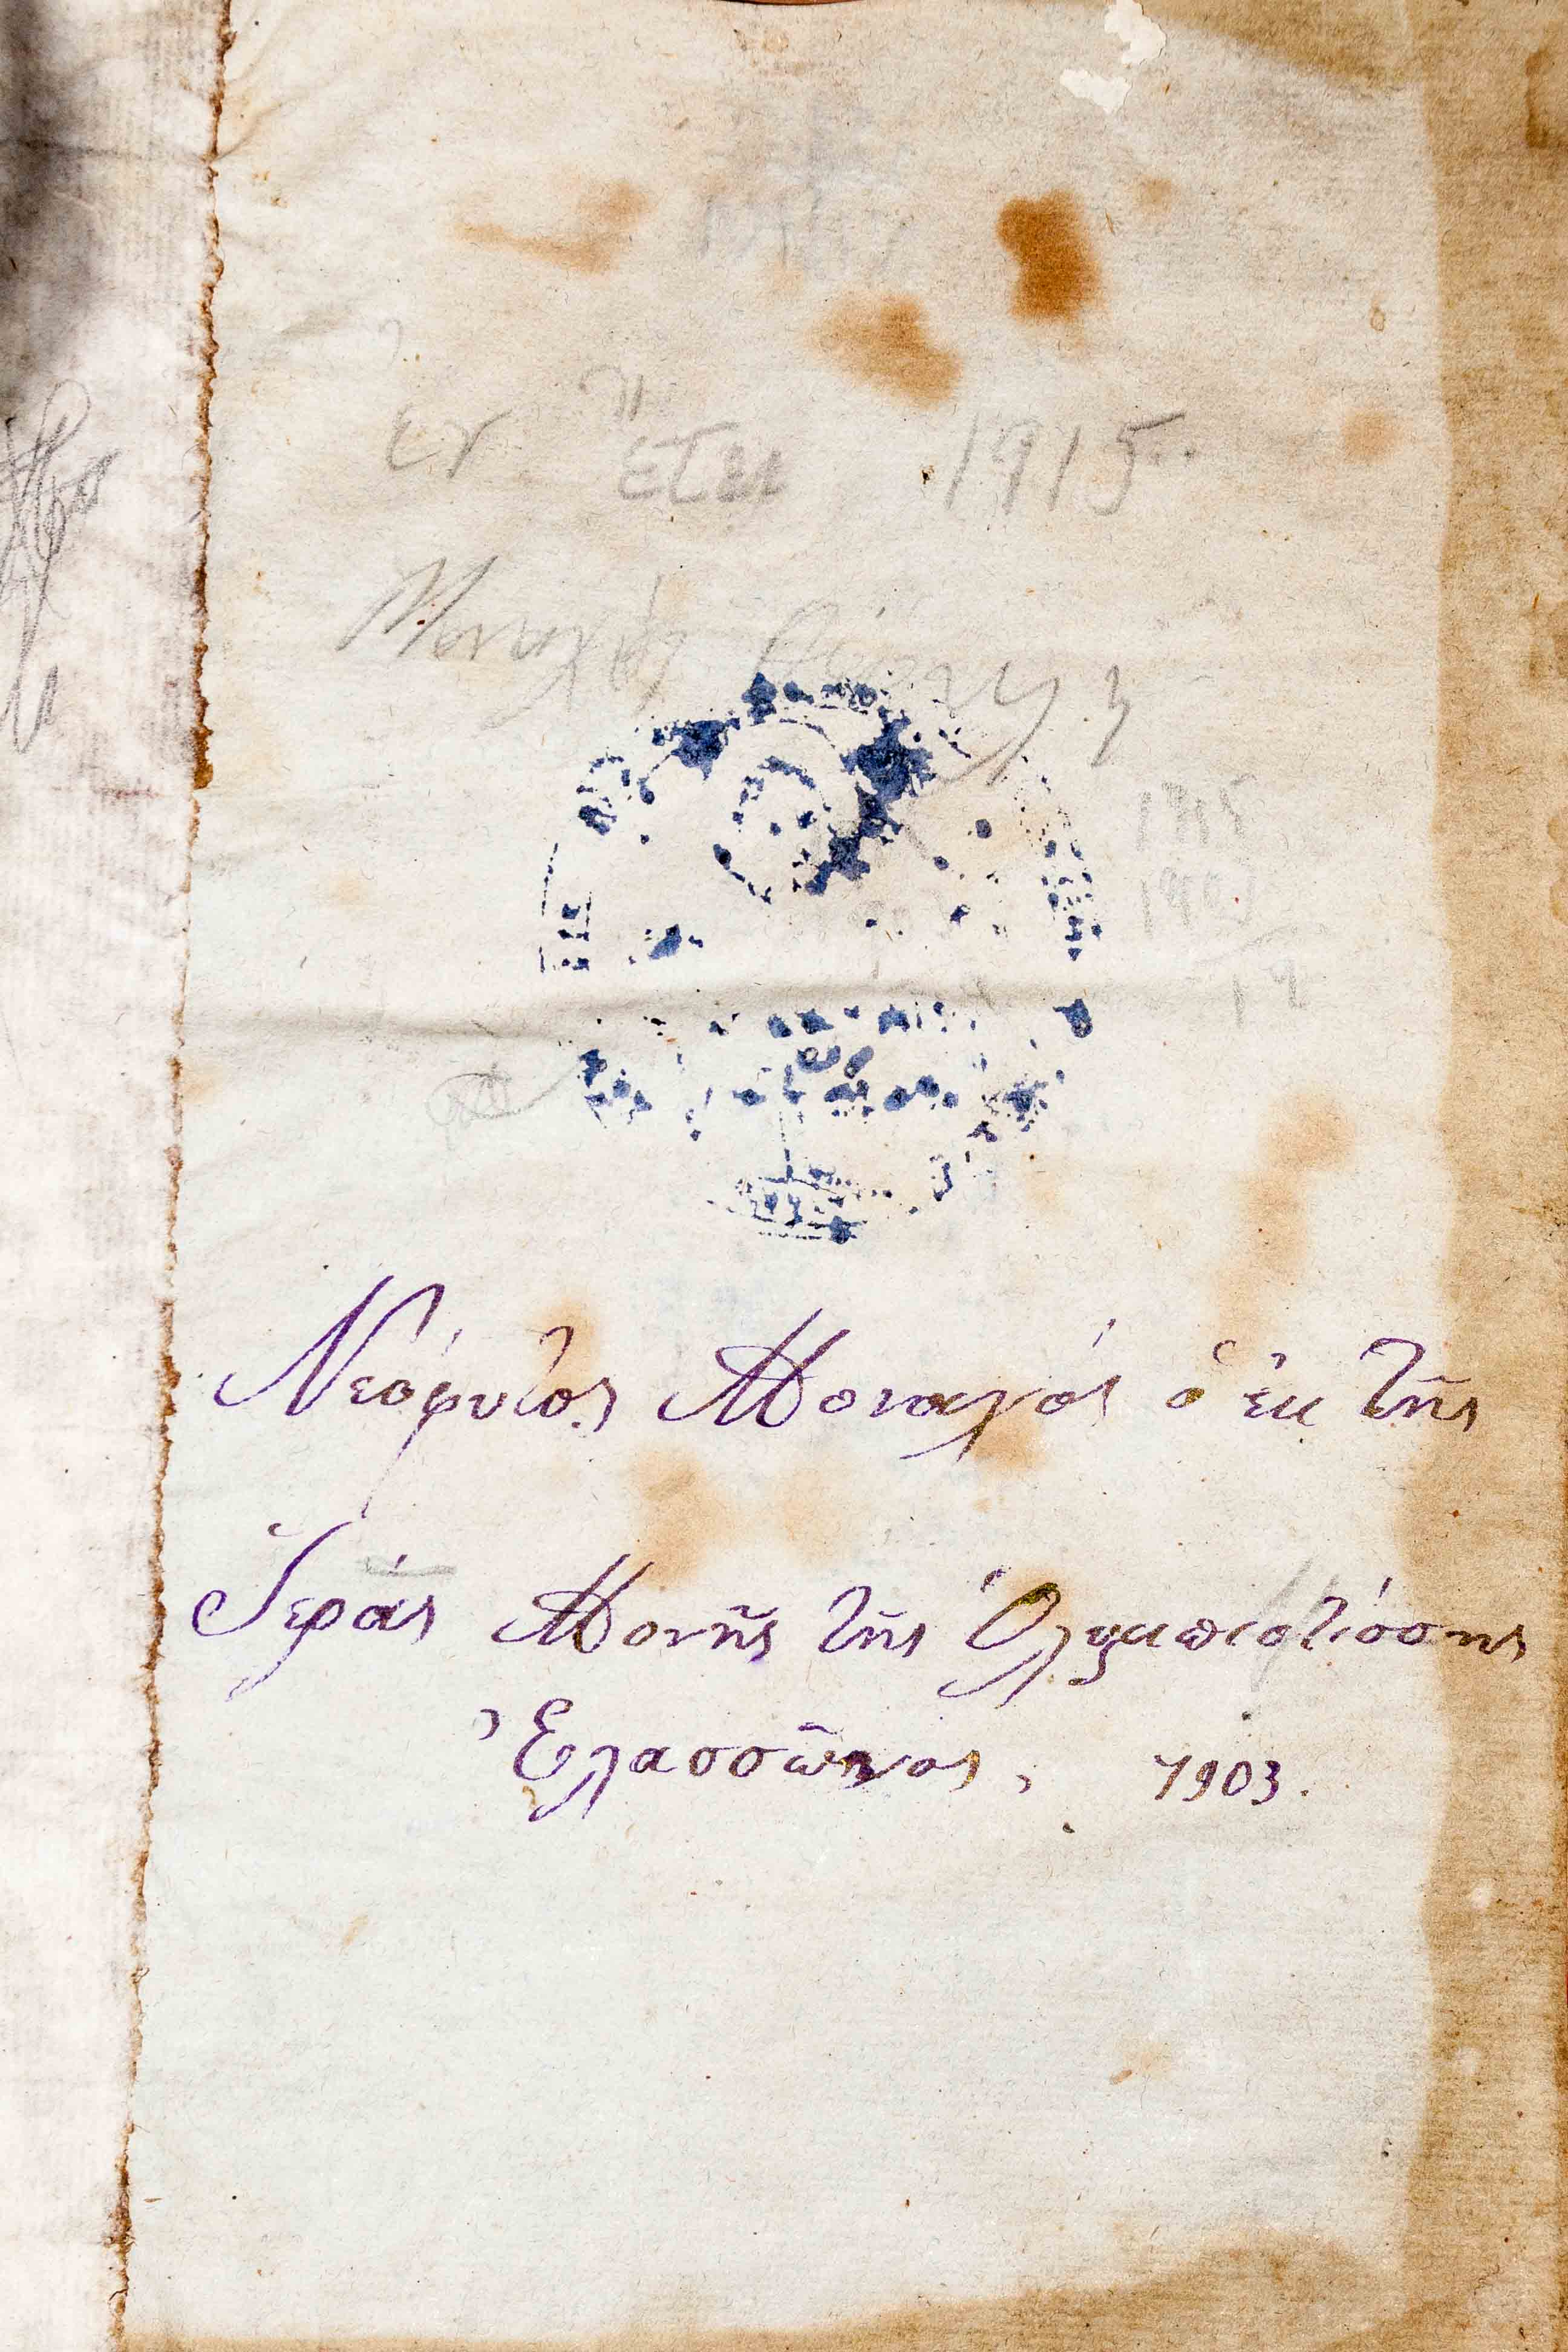 ἐν ἔτει 1915.
1915
1903
12
Νεόφυτος Μοναχός ὁ ἐκ τῆς
Ἱεράς Μονῆς τῆς Ὀλυμπιοτίσσης
Ἐλασσῶνος, 1903.